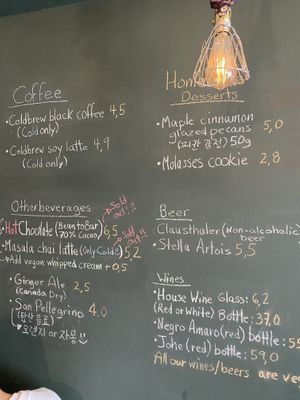 Coffee
•Coldbrew black coffee 4,5
(Cold only)
•Coldbrew soy latte 4,9
(Cold only)
Desserts
•Maple cinnamon
glazed pecans 5,0
(피칸 강정) 50g
•Molasses cookie 2,8
Otherbeverages
Sold
out!!
•Hot Chocolate (Bean to Bar
70% Cacao) 6,5
Sold
out!!
•Masala chai latte (Only Cold!!) 5,2
→Add vegan whipped cream +0,5
•Ginger Ale 2,5
(Canada Dry)
•San Pellegrino 4.0
(탄산음료)
♥오렌지 or 자몽!!
Beer
Clausthaler (Non-alcoholic
beer
•Stella Artois 5,5
Wines
•House Wine Glass: 6,2
(Red or White) Bottle: 37,0
•Negro Amaro (red) bottle: 55
•Johe (red) bottle: 59,0
All our wines/beers are